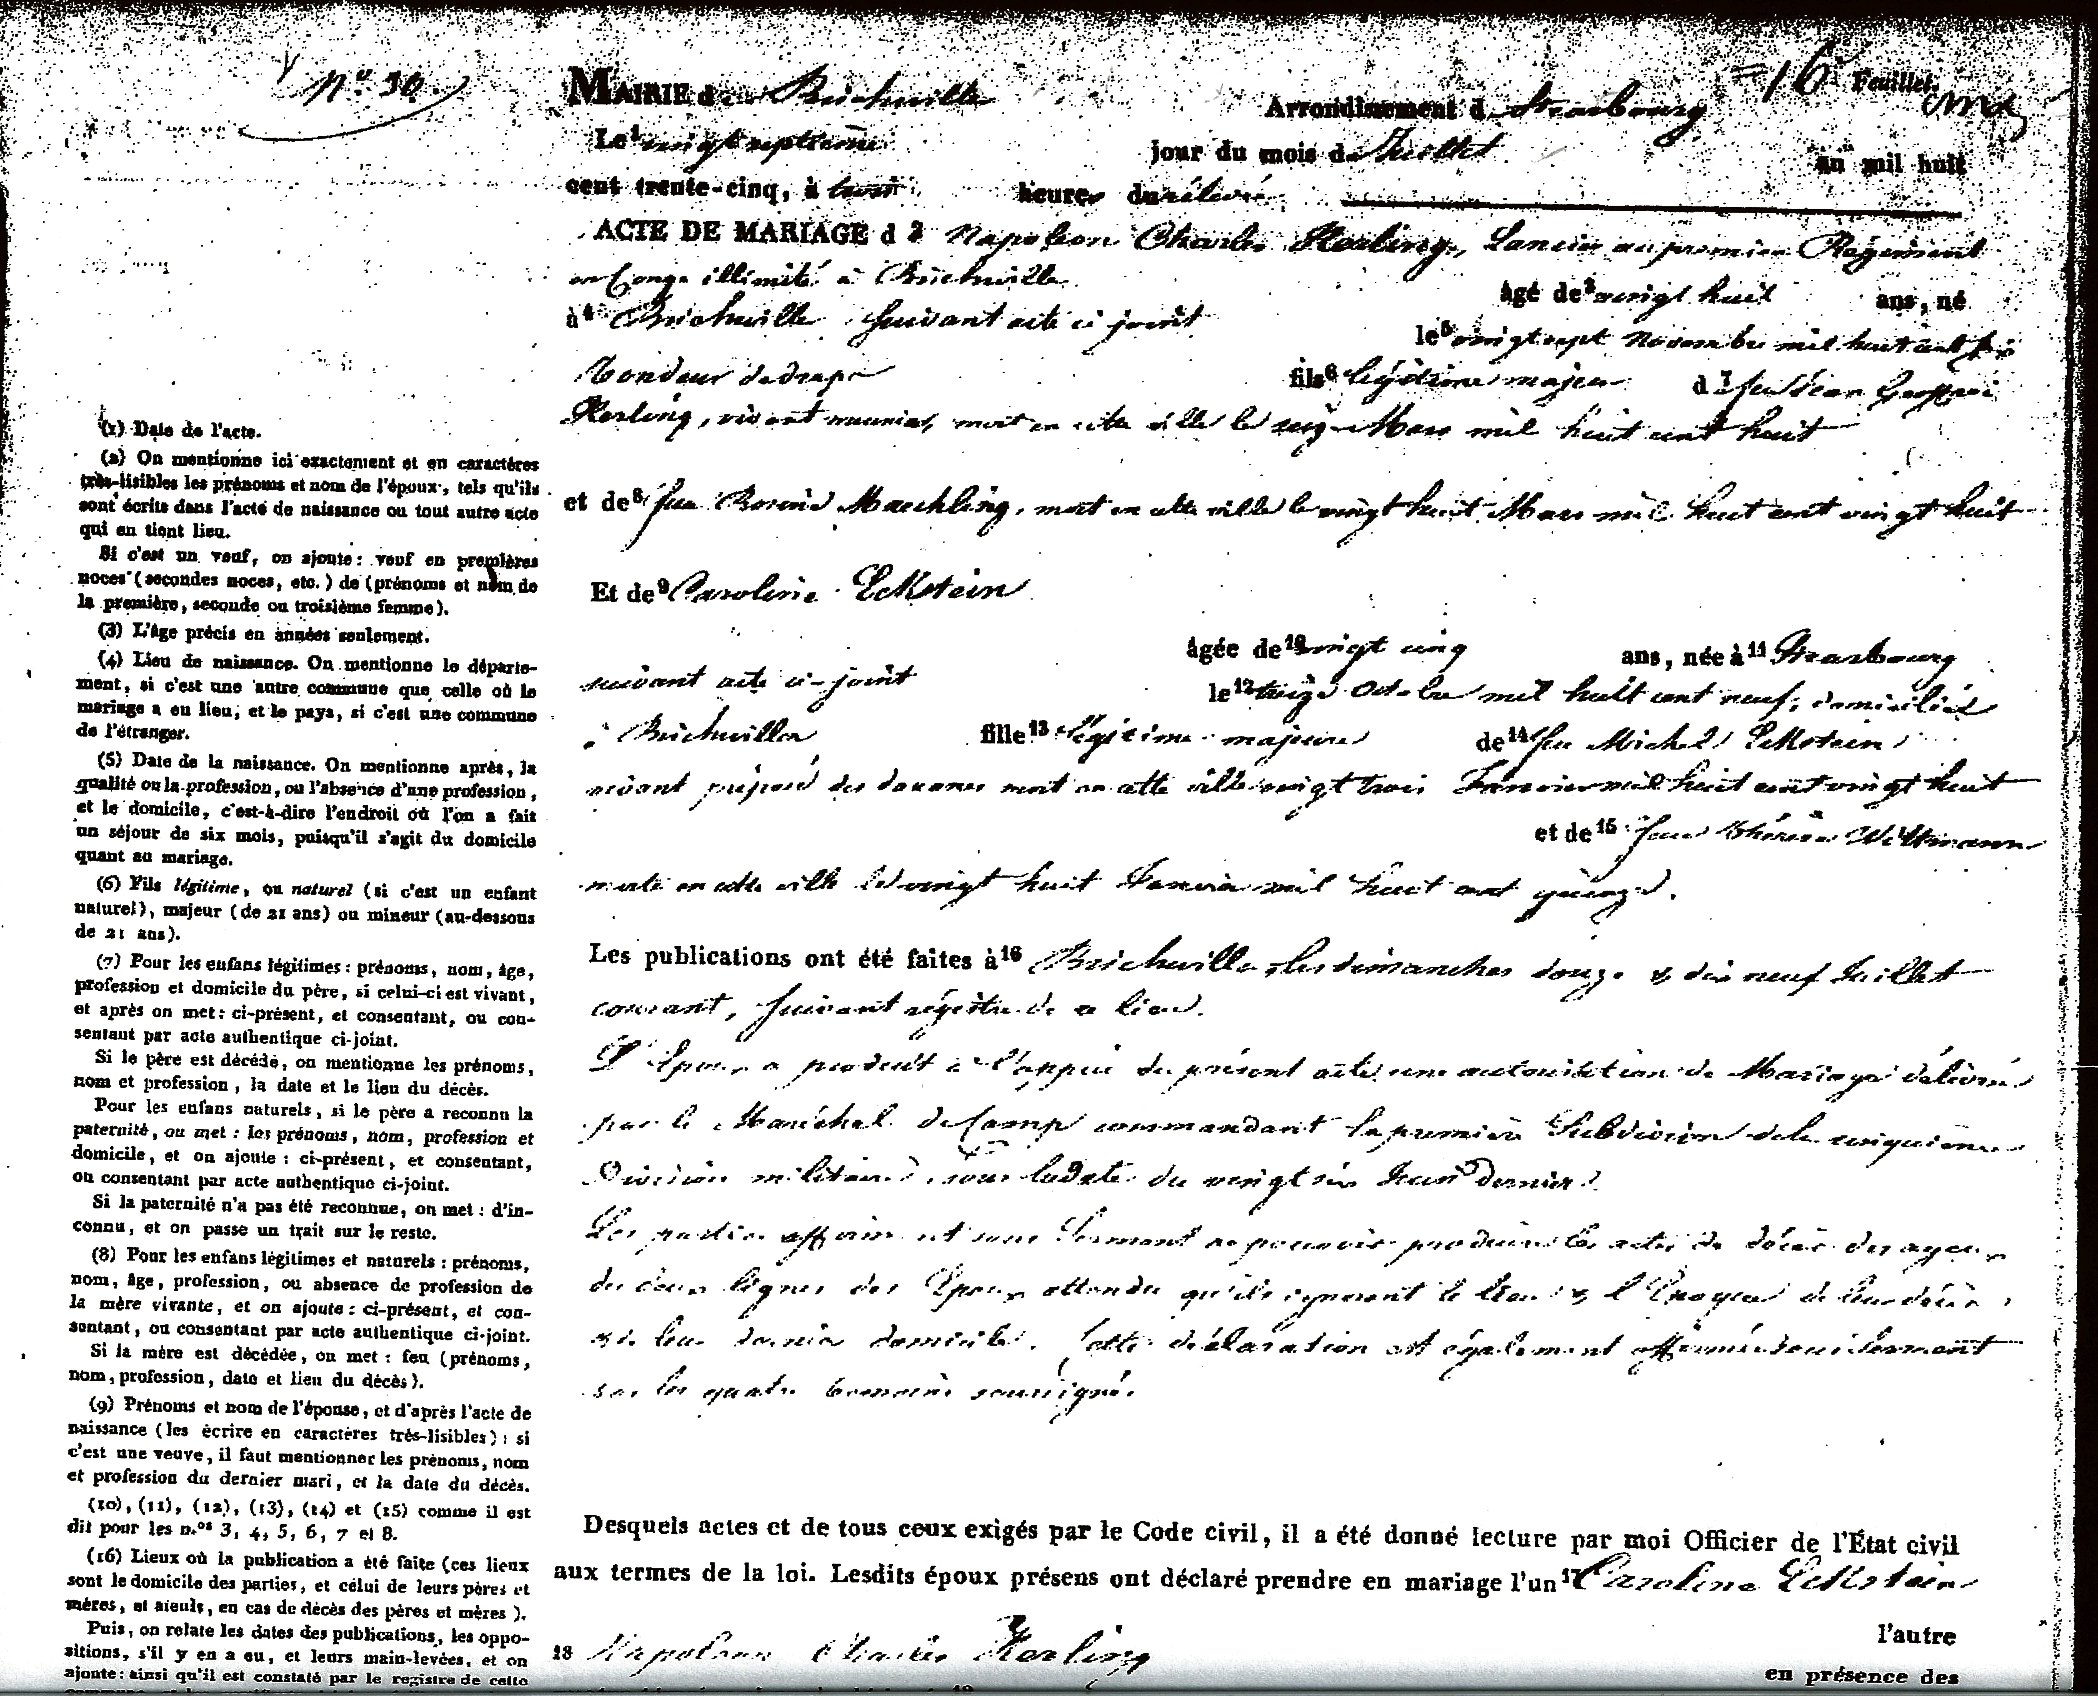 Nº 30.
= 16e Feuillet.
MAIRIE de Bischwiller Arrondissement d Strasbourg
Le 1 vingt septième jour du mois de Juillet an mil huit
cent trente-cinq, à heures du relevée
ACTE DE MARIAGE d 2 Napoléon Charles Herling, Lancier au premier Régiment
en Congé illimité à Bischwiller
âgé de 3 vingt huit ans, né
à 4 Bischwiller suivant acte ci joint
le 5 vingt sept Novembre mil huit cent six
Tondeur de draps fils 6 légitime majeur d 7 feu Jean
Herling, vivant meunier, mort en cette ville le Mars mil huit cent huit
et de 8 feue Maechling, mort en cette ville le vingt huit Mars mil huit cent vingt huit
Et de 9 Caroline Eckstein
âgée de 10 vingt cinq ans, née à 11 Strasbourg
suivant acte ci-joint le 12 Octobre mil huit cent neuf, domiciliée
à Bischwiller fille 13 légitime majeure de 14 feu Michel Eckstein
vivant préposé des douanes mort en cette ville vingt trois Janvier mil huit cent vingt huit
et de 15 feue Thérèse Weltmann
morte en cette ville le vingt huit Janvier mil huit cent quinze.
Les publications ont été faites à 16 Bischwiller, les dimanches douze & dix neuf Juillet
courant, suivant régistre de ce lieu.
L'Epoux a produit à l'appui du présent acte une autorisation de Mariage délivrée
par le Maréchal de Camp commandant la première Subdivision de la cinquième
Division militaire, sous la date du vingt six Juin dernier.
Les parties affirment sous Serment ne pouvoir produire les actes de décès des ayeux
des deux lignes des Epoux attendu qu'ils ignorent le lieu & l'Epoque de leur décès
& de leur dernier domicile. Cette déclaration est également affirmée sous serment
par les quatre témoins soussignés.
Desquels actes et de tous ceux exigés par le Code civil, il a été donné lecture par moi Officier de l'État civil
aux termes de la loi. Lesdits époux présens ont déclaré prendre en mariage l'un 17 Caroline Eckstein
l'autre
18 Napoléon Charles Herling
en présence des
(1) Date de l'acte.
(2) On mentionne ici exactement et en caractères
très-lisibles les prénoms et nom de l'époux, tels qu'ils
sont écrits dans l'acte de naissance ou tout autre acte
qui en tient lieu.
Si c'est un veuf, on ajoute : veuf en premières
noces (secondes noces, etc.) de (prénoms et nom de
la première, seconde ou troisième femme).
(3) L'âge précis en années seulement.
(4) Lieu de naissance. On mentionne le départe-
ment, si c'est une autre commune que celle où le
mariage a eu lieu, et le pays, si c'est une commune
de l'étranger.
(5) Date de la naissance. On mentionne après, la
qualité ou la profession, ou l'absence d'une profession,
et le domicile, c'est-à-dire l'endroit où l'on a fait
un séjour de six mois, puisqu'il s'agit du domicile
quant au mariage.
(6) Fils légitime, ou naturel (si c'est un enfant
naturel), majeur (de 21 ans) ou mineur (au-dessous
de 21 ans).
(7) Pour les enfans légitimes : prénoms, nom, âge,
profession et domicile du père, si celui-ci est vivant,
et après on met : ci-présent, et consentant, ou con-
sentant par acte authentique ci-joint.
Si le père est décédé, on mentionne les prénoms,
nom et profession, la date et le lieu du décès.
Pour les enfans naturels, si le père a reconnu la
paternité, on met : les prénoms, nom, profession et
domicile, et on ajoute : ci-présent, et consentant,
ou consentant par acte authentique ci-joint.
Si la paternité n'a pas été reconnue, on met : d'in-
connu, et on passe un trait sur le reste.
(8) Pour les enfans légitimes et naturels : prénoms,
nom, âge, profession, ou absence de profession de
la mère vivante, et on ajoute : ci-présent, et con-
sentant, ou consentant par acte authentique ci-joint.
Si la mère est décédée, on met : feu (prénoms,
nom, profession, date et lieu du décès).
(9) Prénoms et nom de l'épouse, et d'après l'acte de
naissance (les écrire en caractères très-lisibles) ; si
c'est une veuve, il faut mentionner les prénoms, nom
et profession du dernier mari, et la date du décès.
(10), (11), (12), (13), (14) et (15) comme il est
dit pour les n.os 3, 4, 5, 6, 7 et 8.
(16) Lieux où la publication a été faite (ces lieux
sont le domicile des parties, et célui de leurs pères et
mères, et aieuls, en cas de décès des pères et mères ).
Puis, on relate les dates des publications, les oppo-
sitions, s'il y en a eu, et leurs main-levées, et on
ajoute : ainsi qu'il est constaté par le registre de cette